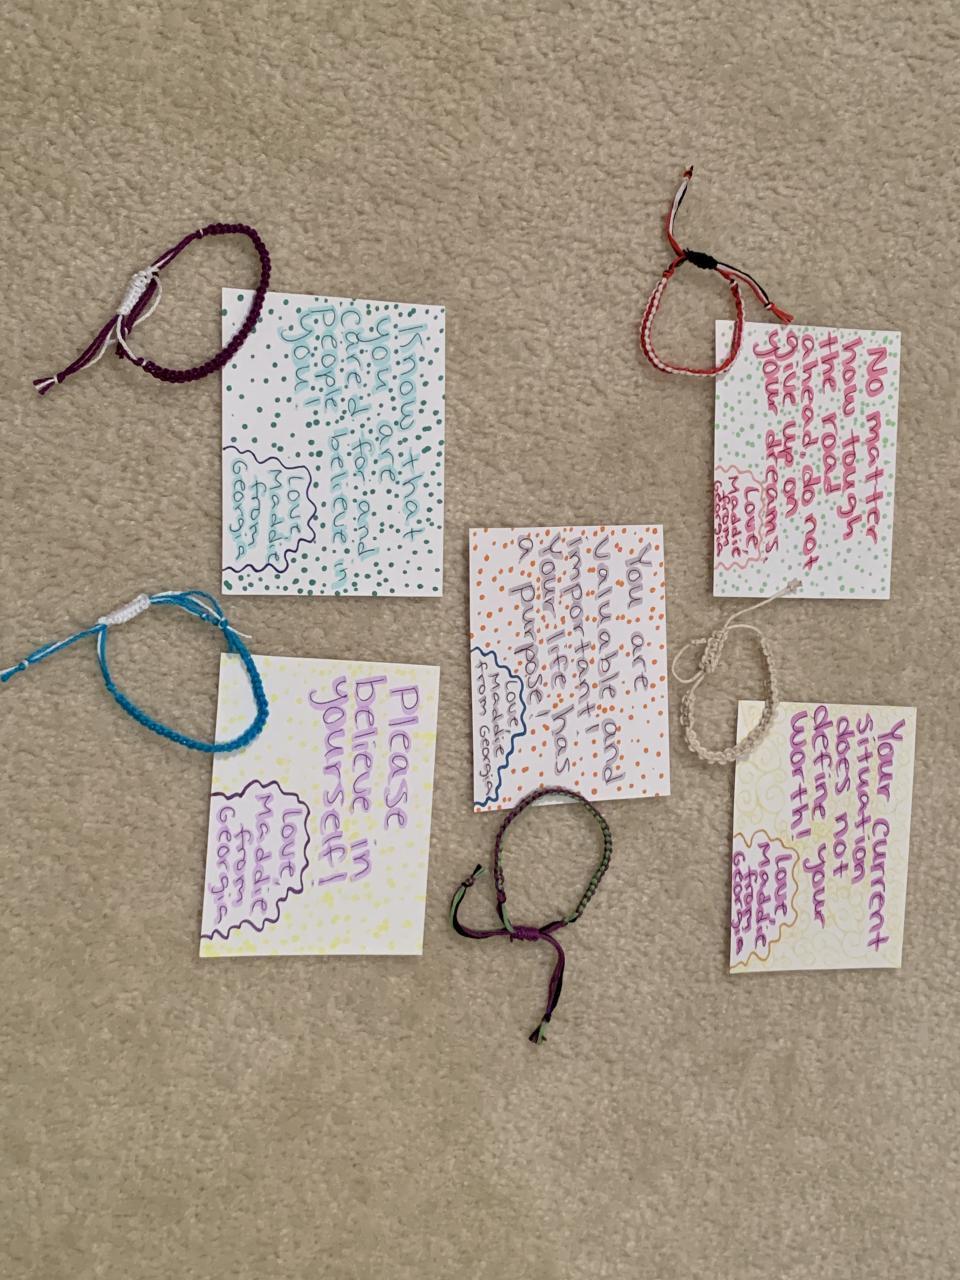 Know that
you are
cared for and
people believe in
you!
Love,
Maddie
from
Georgia
No matter
how tough
the road
ahead, do not
give up on
your dreams
Love
Maddie
from
Georgia
You are
valuable and
important!
Your life has
a purpose!
Love,
Maddie
from Georgia
Please
believe in
yourself!
Love,
Maddie
from
Georgia
Your current
situation
does not
define your
worth!
Love
Maddie
from
Georgia